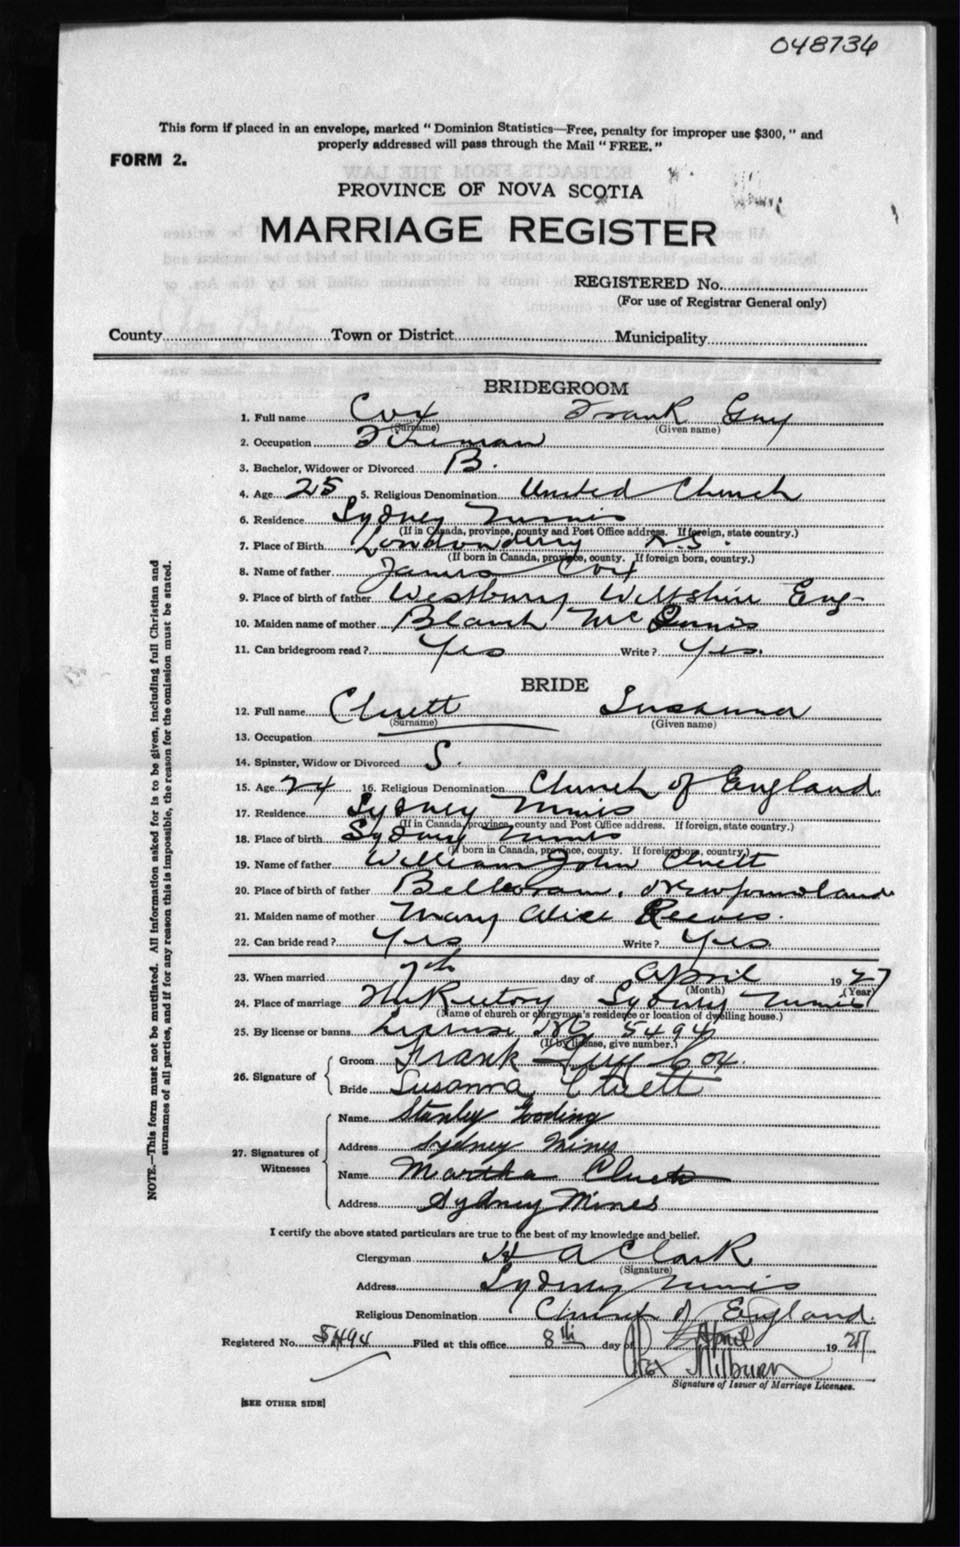 048736
This form if placed in an envelope, marked "Dominion Statistics—Free, penalty for improper use $300," and
properly addressed will pass through the Mail "FREE."
FORM 2.
PROVINCE OF NOVA SCOTIA
MARRIAGE REGISTER
REGISTERED No.
(For use of Registrar General only)
County Town or District Municipality
BRIDEGROOM
1. Full name Cox Frank Guy
(Surname) (Given name)
2. Occupation Fireman
3. Bachelor, Widower or Divorced B.
4. Age 25 5. Religious Denomination United Church
6. Residence Sydney Mines
(If in Canada, province, county and Post Office address. If foreign, state country.)
7. Place of Birth Londonderry NS.
(If born in Canada, province, county. If foreign born, country.)
8. Name of father James Cox
9. Place of birth of father Westbury Wiltshire Eng-
10. Maiden name of mother Blanch
11. Can bridegroom read? Yes Write? Yes.
BRIDE
12. Full name Cluett Susanna
(Surname) (Given name)
13. Occupation
14. Spinster, Widow or Divorced S.
15. Age 24 16. Religious Denomination Church of England.
17. Residence Sydney Mines
(If in Canada, province, county and Post Office address. If foreign, state country.)
18. Place of birth Sydney Mines
(If born in Canada, province, county. If foreign born, country.)
19. Name of father William John Cluett
20. Place of birth of father Belleoram, Newfoundland
21. Maiden name of mother Mary Alice Reeves.
22. Can bride read? Yes Write? Yes
23. When married 7th day of April 1927
(Month) (Year)
24. Place of marriage The Rectory Sydney Mines
(Name of church or clergyman's residence or location of dwelling house.)
25. By license or banns License No 5494
(If by license, give number.)
26. Signature of
Groom Frank Guy Cox.
Bride Susanna Cluett
27. Signatures of Witnesses
Name Stanley Gooding
Address Sydney Mines
Name Martha Cluett
Address Sydney Mines
I certify the above stated particulars are true to the best of my knowledge and belief.
Clergyman H A Clark
(Signature)
Address Sydney Mines
Religious Denomination Church of England.
Registered No. 5494 Filed at this office 8th day of April 1927
Alex Milburn
Signature of Issuer of Marriage Licenses.
[SEE OTHER SIDE]
NOTE.—This form must not be mutilated. All information asked for is to be given, including full Christian and
surnames of all parties, and if for any reason this is impossible, the reason for the omission must be stated.